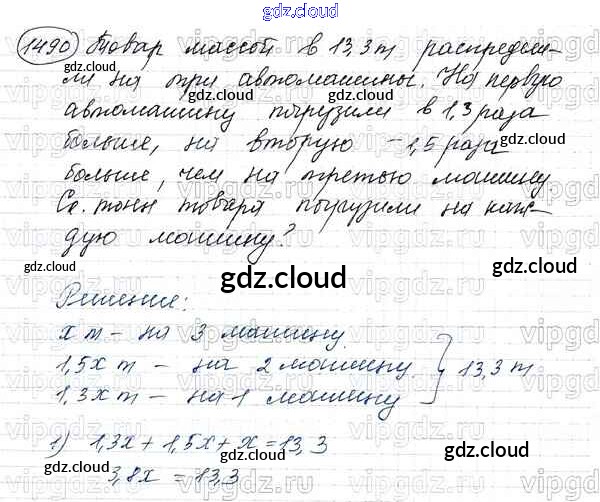 gdz.cloud
gdz.cloud
1490 Товар массой в 13,3 т распредели-
ли на три автомашины. На первую
автомашину погрузили в 1,3 раза
больше, на вторую – 1,5 раза
больше, чем на третью машину.
Ск. тонн товара погрузили на каж-
дую машину?
gdz.cloud
gdz.cloud
gdz.cloud
gdz.cloud
Решение:
x т – на 3 машину
1,5x т – на 2 машину } 13,3 т
1,3x т – на 1 машину
1) 1,3x + 1,5x + x = 13,3
3,8x = 13,3
gdz.cloud
gdz.cloud
gdz.cloud